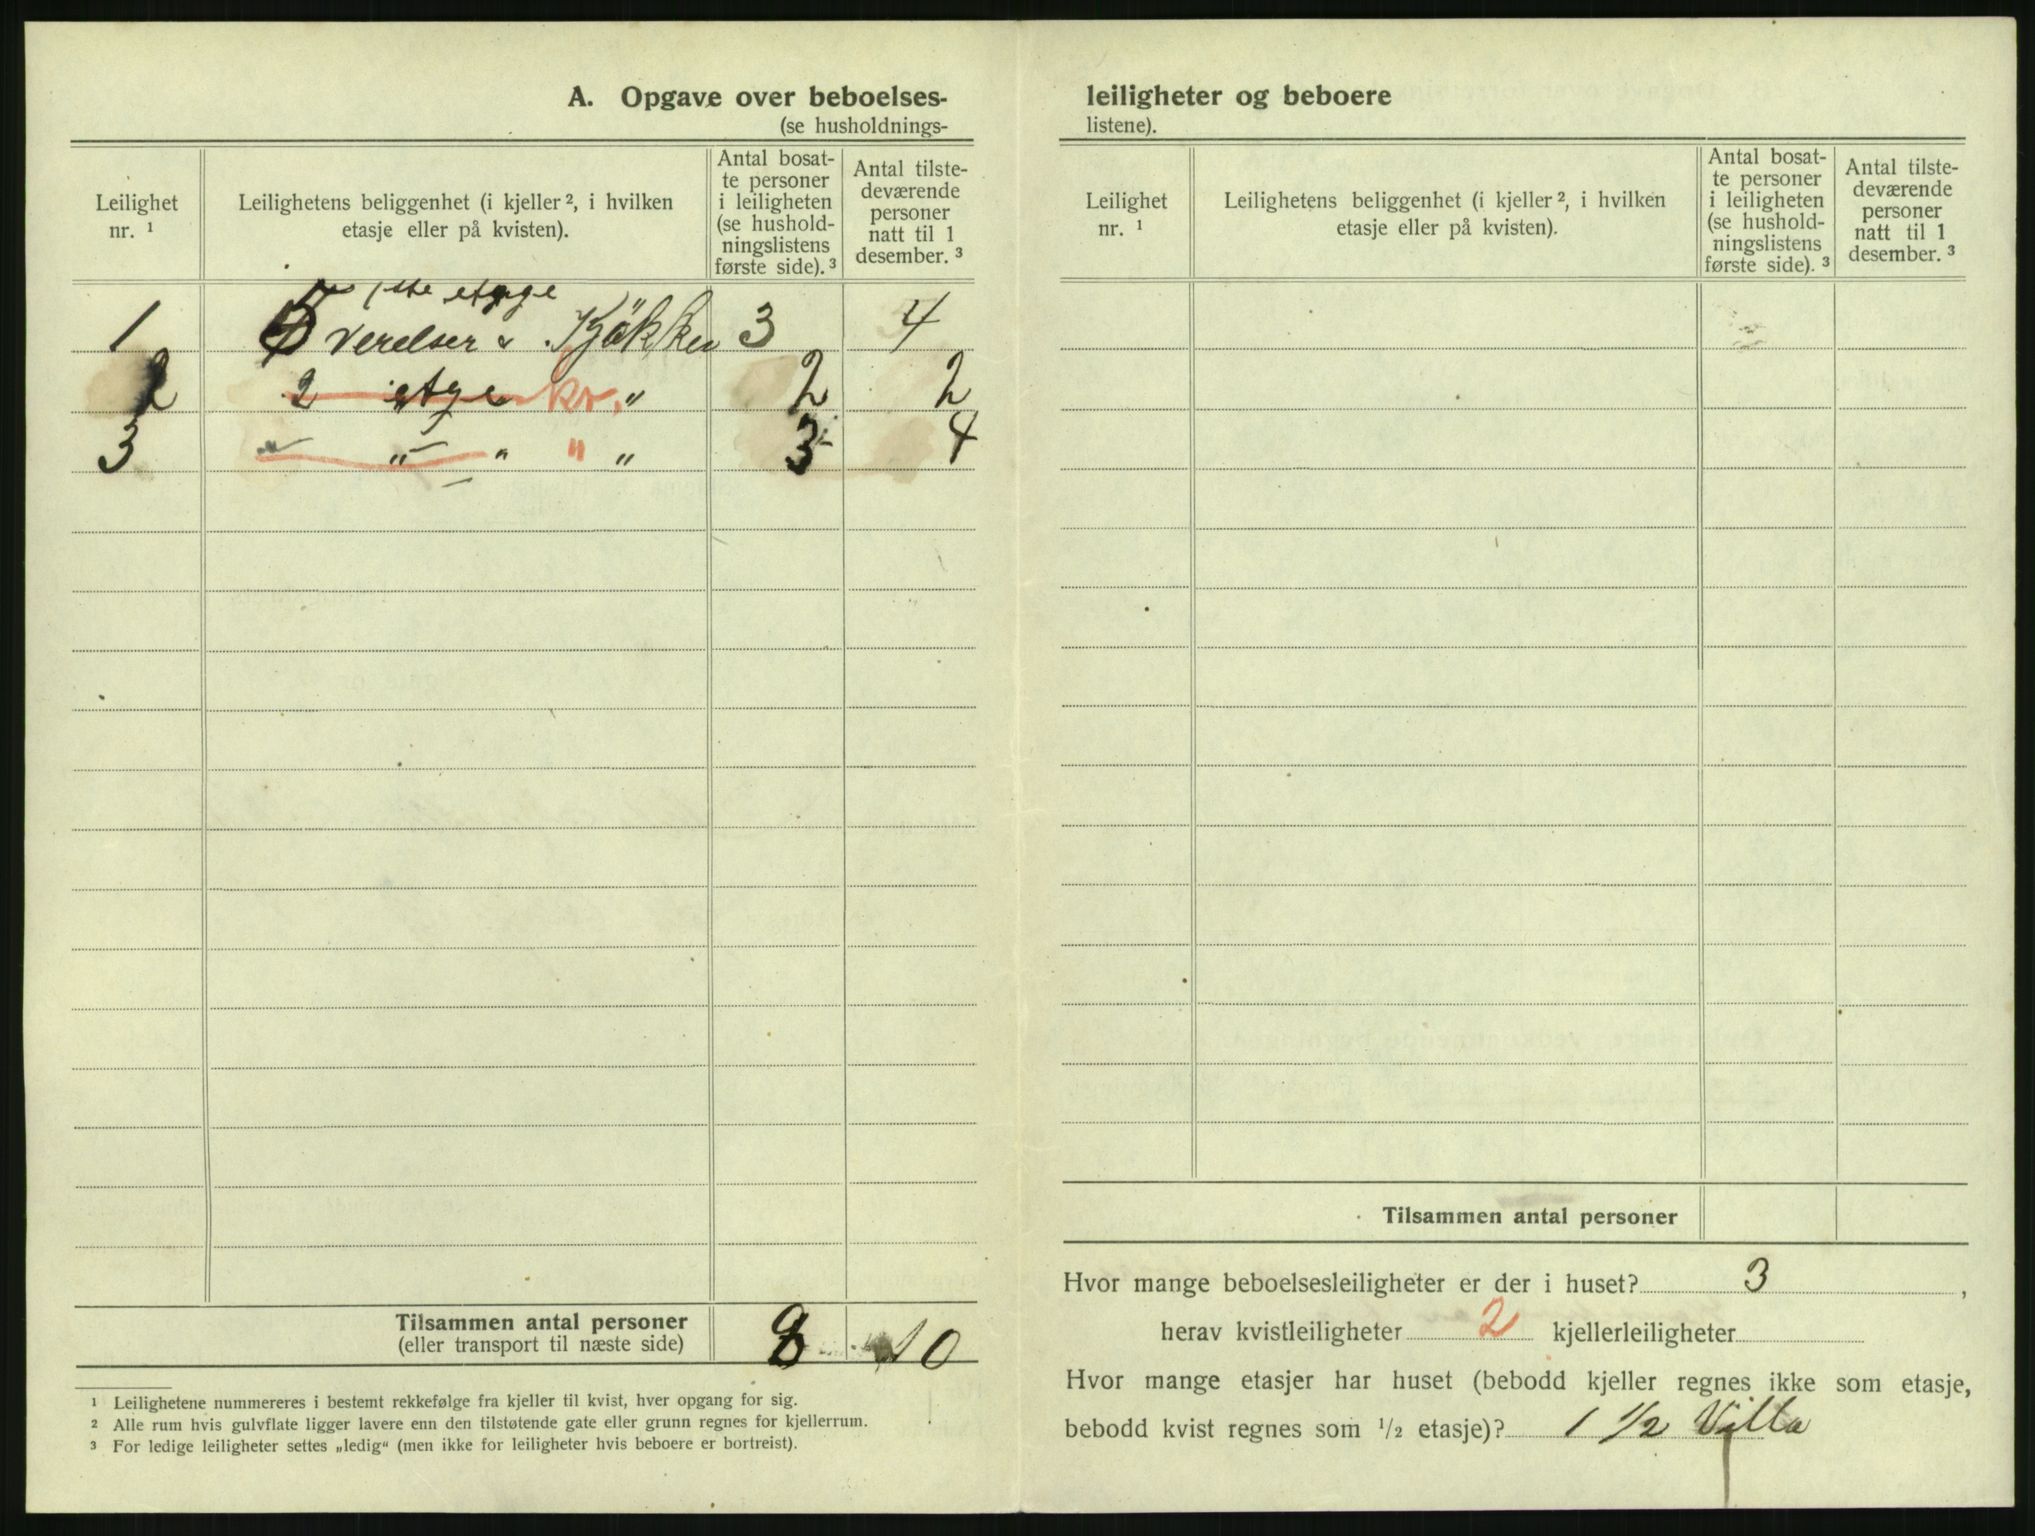 A. Opgave over beboelses-
(se husholdnings-
Leilighet
nr. ¹
Leilighetens beliggenhet (i kjeller ², i hvilken
etasje eller på kvisten).
Antal bosat-
te personer
i leiligheten
(se hushold-
ningslistens
første side). ³
Antal tilste-
deværende
personer
natt til 1
desember. ³
1ste etage
1 værelser & Kjökken 3 4
2 2 etge kv. „ 2 2
3 „ „ „ „ „ 3 4
Tilsammen antal personer
(eller transport til næste side)
8 10
¹ Leilighetene nummereres i bestemt rekkefølge fra kjeller til kvist, hver opgang for sig.
² Alle rum hvis gulvflate ligger lavere enn den tilstøtende gate eller grunn regnes for kjellerrum.
³ For ledige leiligheter settes „ledig“ (men ikke for leiligheter hvis beboere er bortreist).
leiligheter og beboere
listene).
Leilighet
nr. ¹
Leilighetens beliggenhet (i kjeller ², i hvilken
etasje eller på kvisten).
Antal bosat-
te personer
i leiligheten
(se hushold-
ningslistens
første side). ³
Antal tilste-
deværende
personer
natt til 1
desember. ³
Tilsammen antal personer
Hvor mange beboelsesleiligheter er der i huset? 3 ,
herav kvistleiligheter 2 kjellerleiligheter
Hvor mange etasjer har huset (bebodd kjeller regnes ikke som etasje,
bebodd kvist regnes som ½ etasje)? 1 ½ Villa